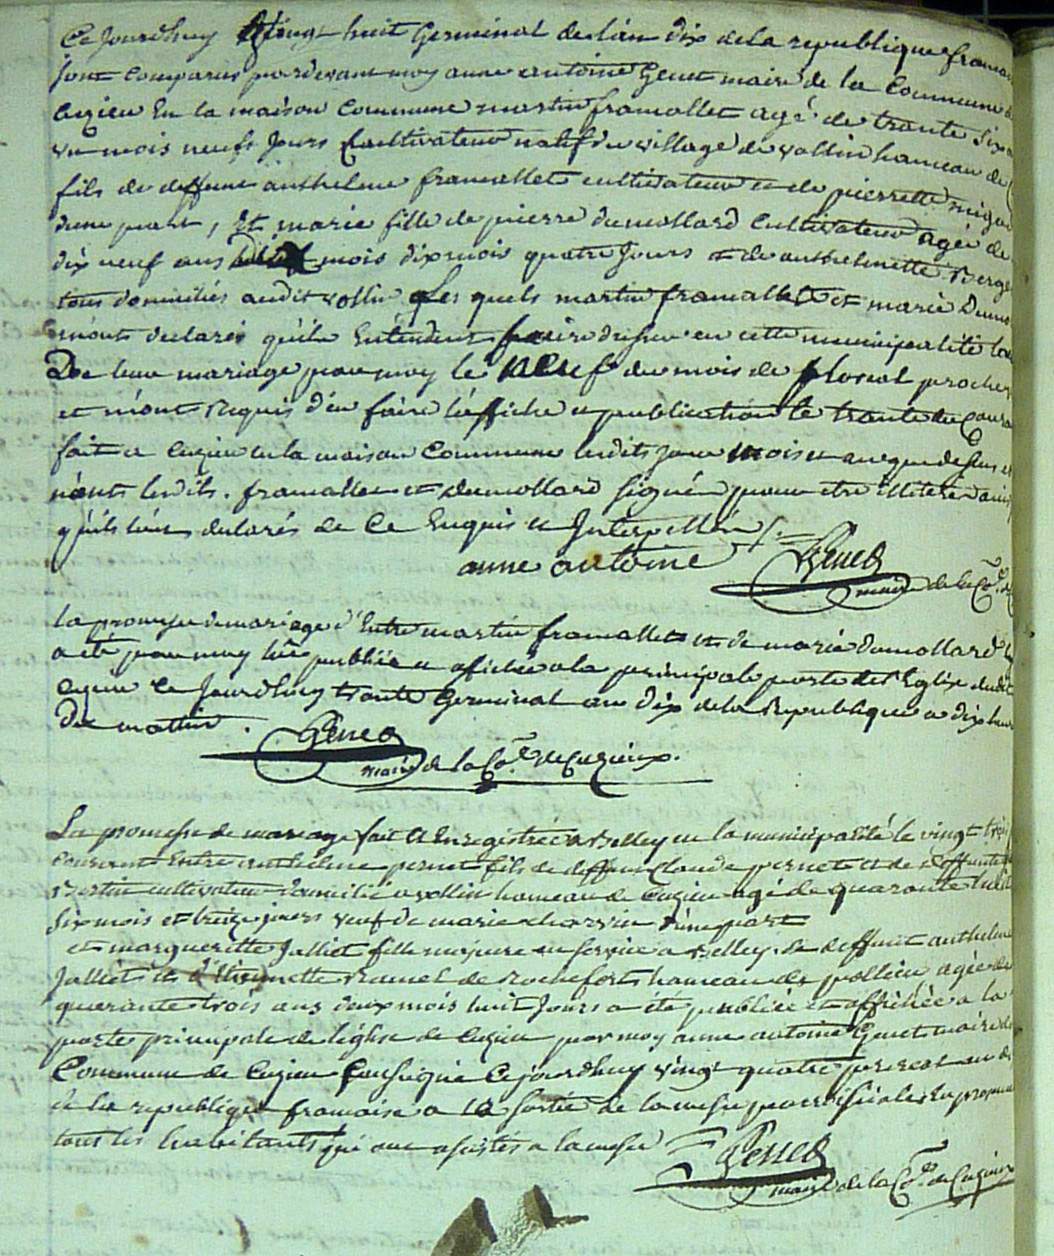 Ce Jourdhuy vingt huit Germinal de l'an dix de la republique
sont comparus pardevant moy anne antoine Genet maire de la Commune
Cuzieu En la maison Commune martin framollet agé de trante six
un mois neufs Jours Cultivateur natif du village de vollin hameau de
fils de deffunt anthelme framollet cultivateur et de pierrette
dune part, Et marie fille de pierre dumollard Cultivateur agée de
dix neuf ans mois dix mois quatre Jours et de anthelmette
tous domiciliés audit vollin Les quels martin framallet et marie Dumo
m'ont declarés qu'ils Entendent faire dresser en cette municipalité
De leur mariage par moy le neuf du mois de floreal prochen
et m'ont Requis d'en faire l'affiche et publication le trante du Coura
fait a Cuzieu en la maison Commune lesdits Jour mois et an que dessus et
n'onts lesdits. framallet et dumollard signés pour etre illiterés ainsi
qu'ils l'ont declarés de Ce Enquis et Interpellés /.
anne antoine Genet
maire de la Co.e de
la promesse de mariage d'Entre martin framallet et de marie dumollard
a été par moy lüe publiée et afichée a la principale porte de l'Eglise dudit
Cuzieu Ce Jourdhuy trante Germinal an dix de la Republique a dix heur
Du mattin. Genet
maire de la Co.e de Cuzieux.
La promesse de mariage fait et Enregistree a Belley en la municipalité le vingt trois
courant Entre anthelme pernet fils de deffunt Claude pernet et de deffunte
Bertin cultivateur domicilié a vollin hameau de Cuzieu agé de quarante huit
six mois et treize jours veuf de marie charvin d'une part
et margueritte Jalliet fille majeure en service a Belley de deffunt anthelme
Jalliet et d'Etiennette Ramel de Rochefort hameau de pollieu agée de
quarante trois ans deux mois huit Jours a été publiée et affichée a la
porte principale de l'église de Cuzieu par moy anne antoine Genet maire de
Commune de Cuzieu soussigné Ce jourdhuy vingt quatre an
de la republique francaise a la sortie de la messe paroissiale En presence
tous les habitants qui ont asistés a la messe Genet
maire de la Co.e de Cuzieux